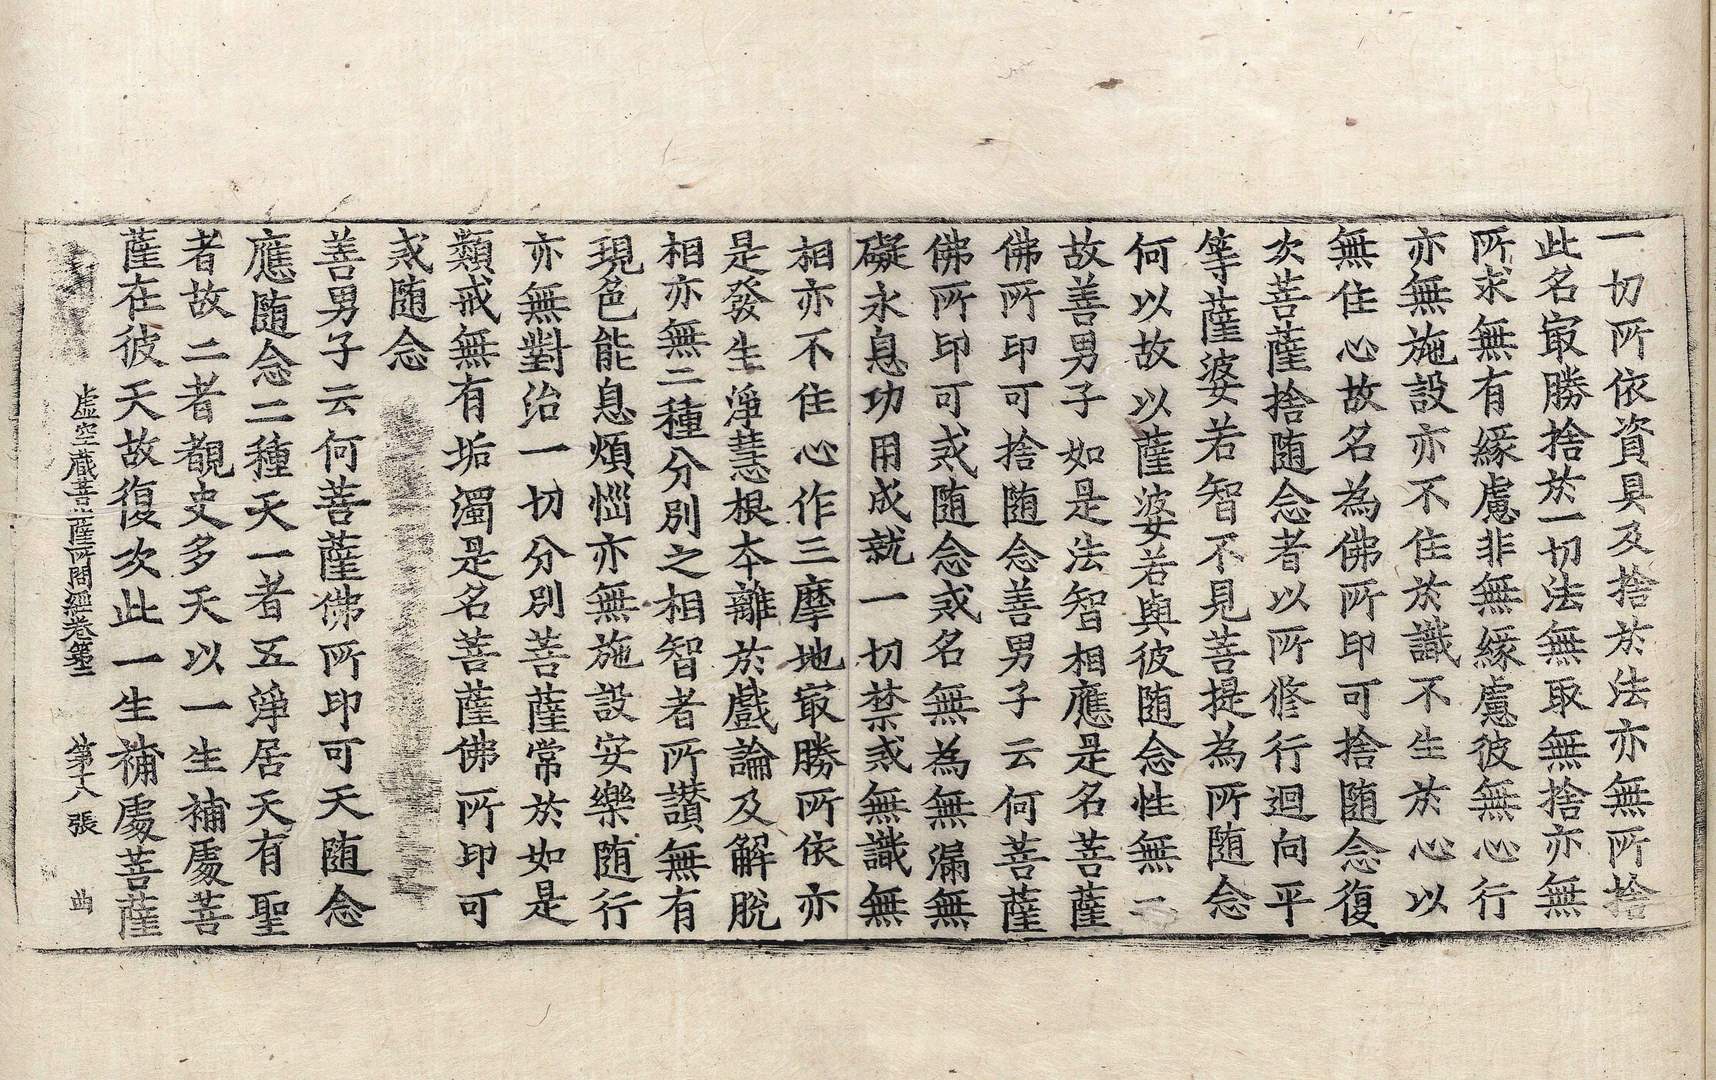 一切所依資具及捨於法亦無所捨
此名㝡勝捨於一切法無取無捨亦無
所求無有緣慮非無緣慮彼無心行
亦無施設亦不住於識不生於心以
無住心故名為佛所印可捨随念復
次菩薩捨随念者以所修行迴向平
等薩婆若智不見菩提為所随念
何以故以薩婆若與彼随念性無二
故善男子如是法智相應是名菩薩
佛所印可捨随念善男子云何菩薩
佛所印可戒随念戒名無為無漏無
礙永息功用成就一切禁戒無識無
相亦不住心作三摩地㝡勝所依亦
是發生淨慧根本離於戲論及解脫
相亦無二種分別之相智者所讚無有
現色能息煩惱亦無施設安樂随行
亦無對治一切分別菩薩常於如是
類戒無有垢濁是名菩薩佛所印可
戒随念
善男子云何菩薩佛所印可天随念
應随念二種天一者五淨居天有聖
者故二者覩史多天以一生補處菩
薩在彼天故復次此一生補處菩薩
虛空藏菩薩所問經卷第三 第十八張 曲